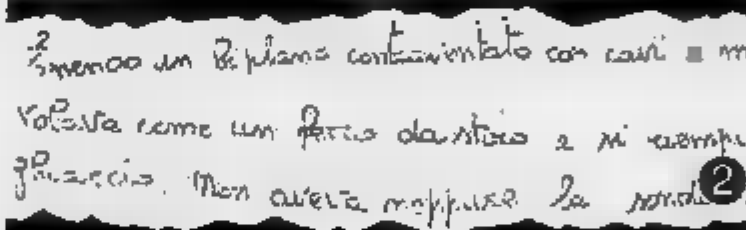 Essendo un biplano controventato con cavi e m
volava come un ferro da stiro e si riempi
ghiaccio. Non aveva neppure la sonda
2